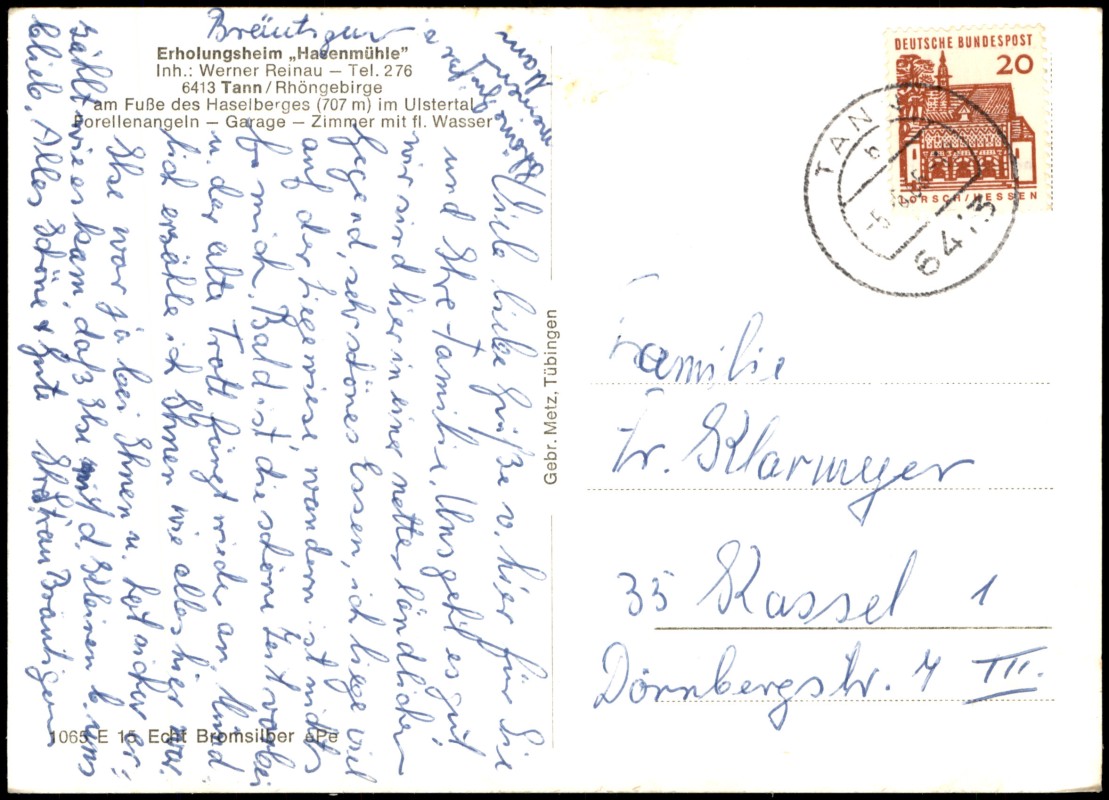 Bräutigam
Erholungsheim „Hasenmühle"
Inh.: Werner Reinau – Tel. 276
6413 Tann/Rhöngebirge
am Fuße des Haselberges (707 m) im Ulstertal
Forellenangeln – Garage – Zimmer mit fl. Wasser
Viele liebe Grüße v. hier für Sie
und Ihre Familie. Uns geht es gut
wir sind hier in einer netten ländlichen
Gegend, sehr schönes Essen, ich liege viel
auf der Liegewiese, wandern ist nichts
f. mich. Bald ist die schöne Zeit vorbei
u. der alte Trott fängt wieder an. Münd-
lich erzähle ich Ihnen wie alles hier war.
Ilse war ja bei Ihnen u. hat sicher er-
zählt wie es kam, daß Ilse mit d. Kleinen b. uns
blieb. Alles Schöne & Gute Ihre Frau Bräutigam
1065 E 15 Echt Bromsilber aPe
Gebr. Metz, Tübingen
DEUTSCHE BUNDESPOST
20
LORSCH/HESSEN
TANN
6413
Familie
Fr. Klarmeyer
35 Kassel 1
Dörnbergstr. 4 III.